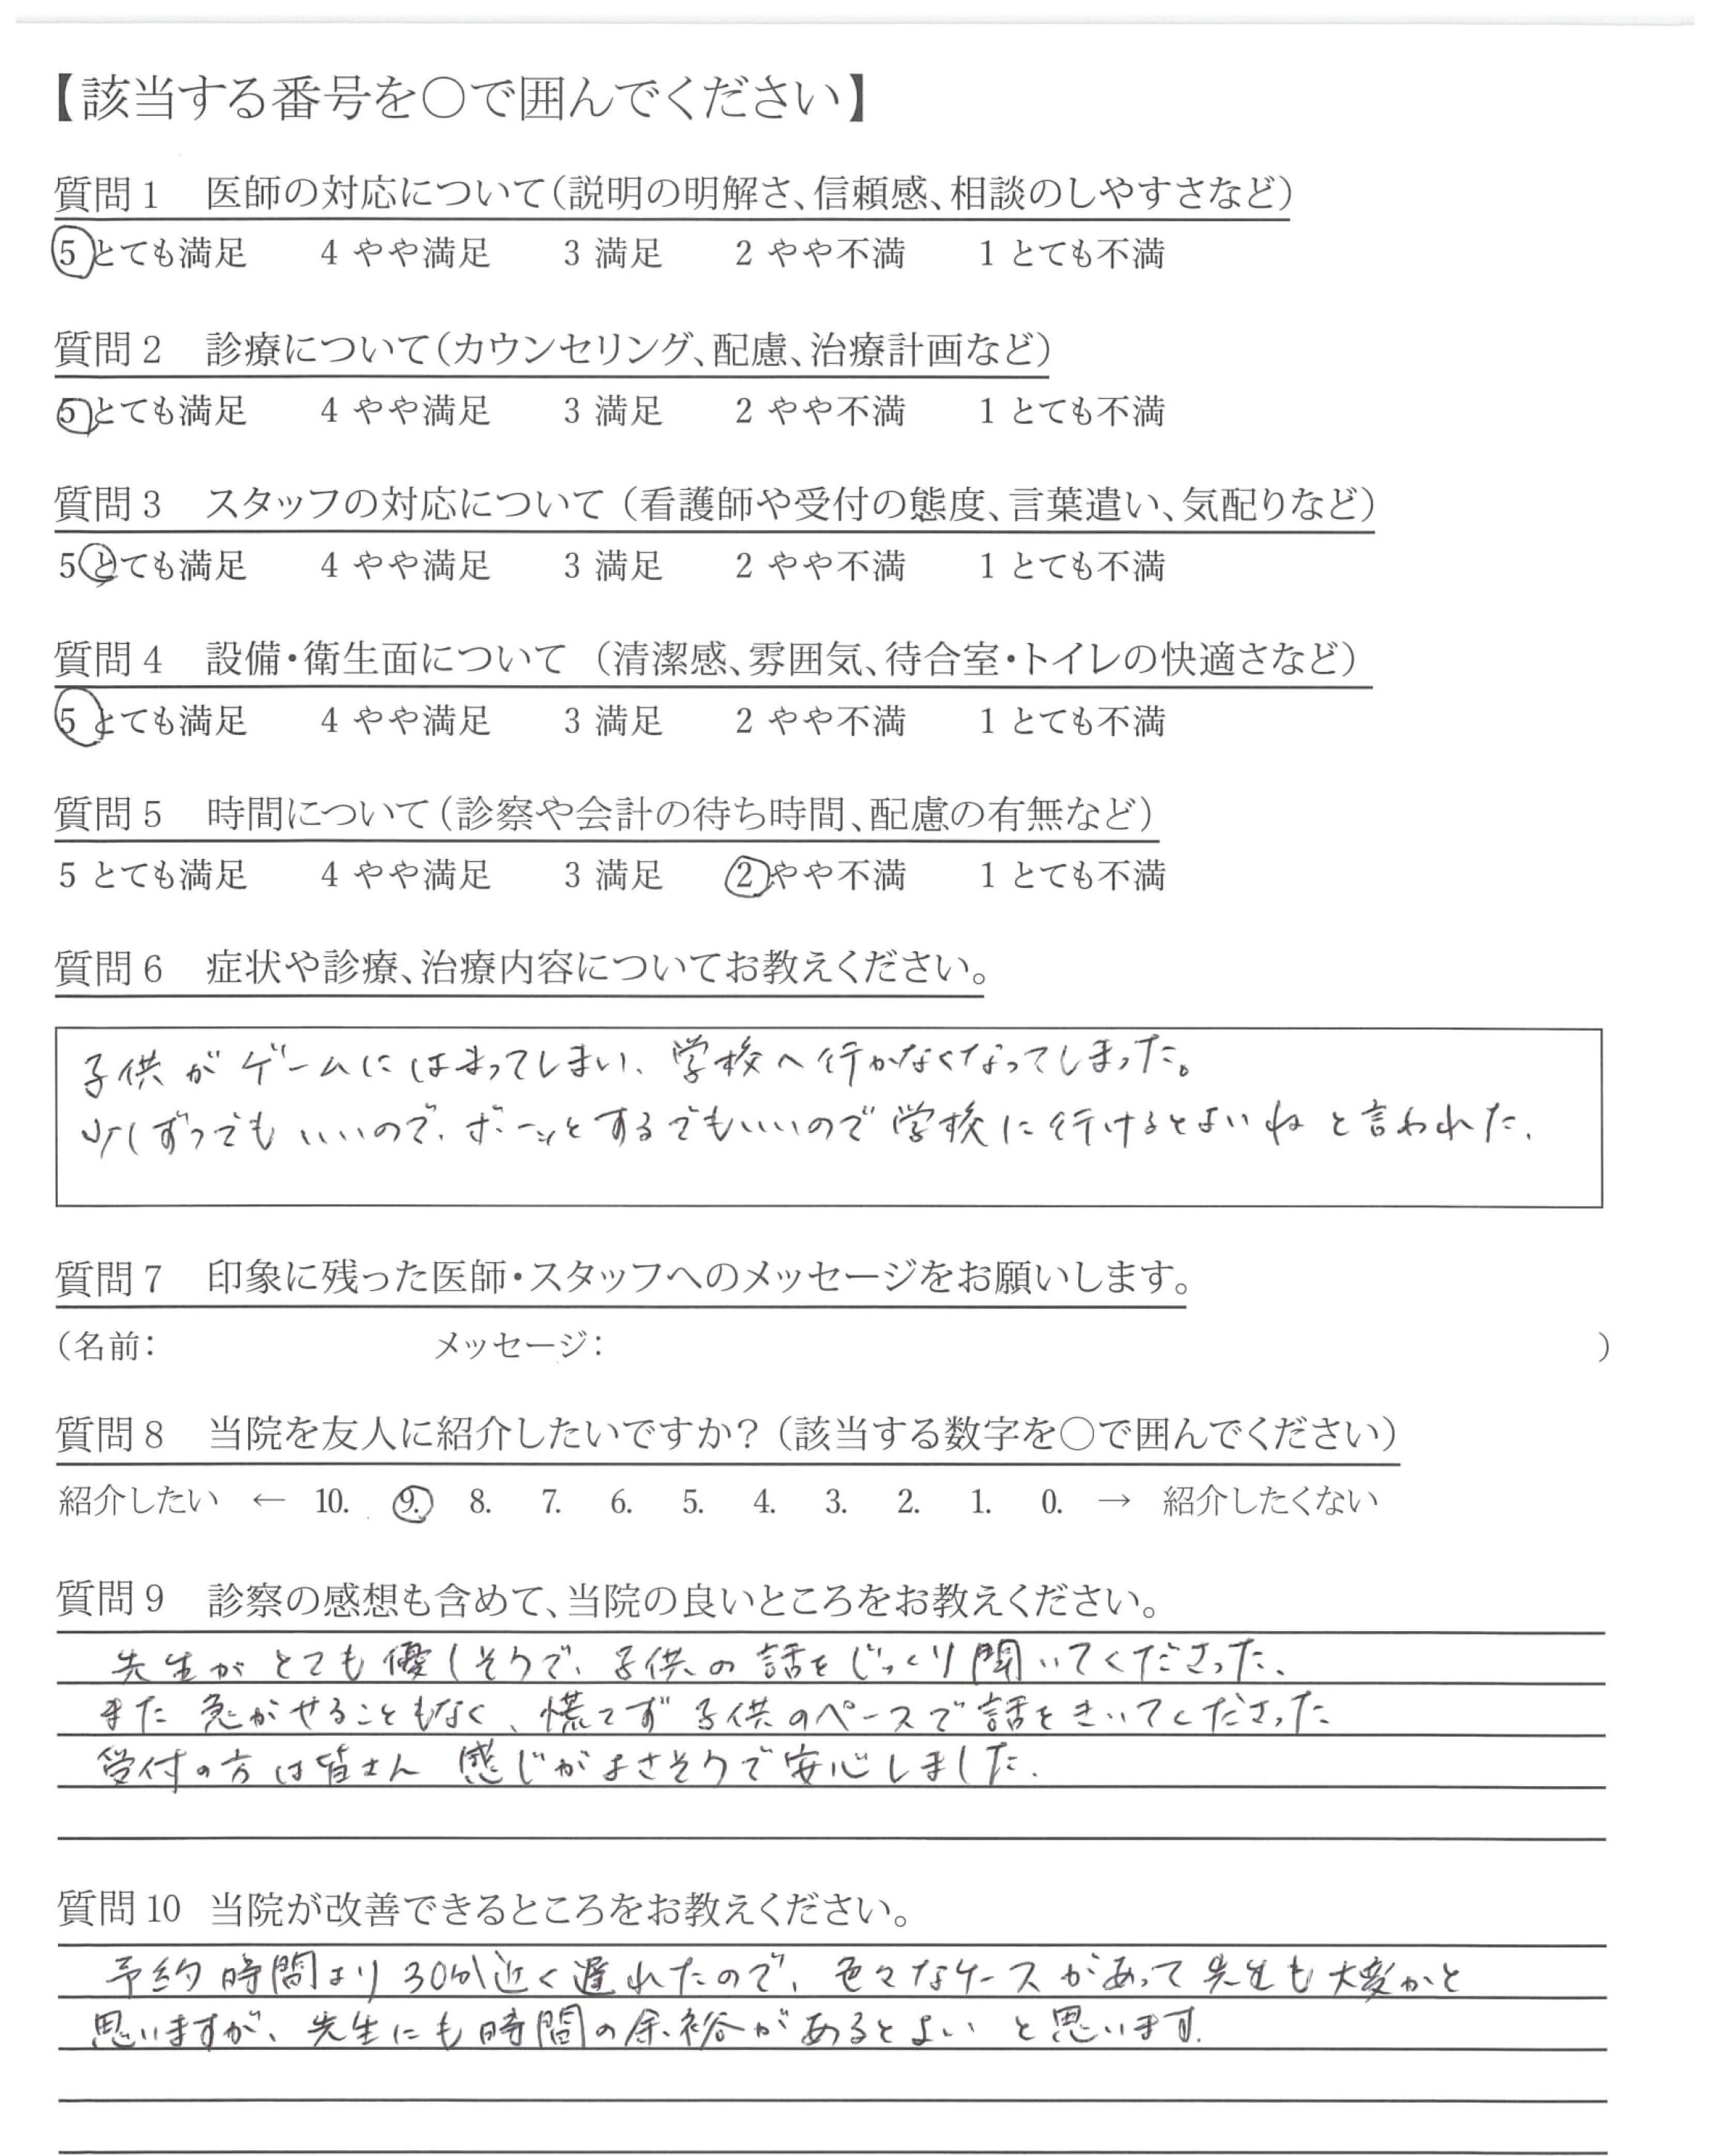 【該当する番号を○で囲んでください】
質問1　医師の対応について（説明の明解さ、信頼感、相談のしやすさなど）
5 とても満足　4 やや満足　3 満足　2 やや不満　1 とても不満
質問2　診療について（カウンセリング、配慮、治療計画など）
5 とても満足　4 やや満足　3 満足　2 やや不満　1 とても不満
質問3　スタッフの対応について（看護師や受付の態度、言葉遣い、気配りなど）
5 とても満足　4 やや満足　3 満足　2 やや不満　1 とても不満
質問4　設備・衛生面について（清潔感、雰囲気、待合室・トイレの快適さなど）
5 とても満足　4 やや満足　3 満足　2 やや不満　1 とても不満
質問5　時間について（診察や会計の待ち時間、配慮の有無など）
5 とても満足　4 やや満足　3 満足　2 やや不満　1 とても不満
質問6　症状や診療、治療内容についてお教えください。
子供がゲームにはまってしまい、学校へ行かなくなってしまった。
少しずつでもいいので、ボーッとするでもいいので学校に行けるとよいねと言われた、
質問7　印象に残った医師・スタッフへのメッセージをお願いします。
（名前：　メッセージ：　）
質問8　当院を友人に紹介したいですか？（該当する数字を○で囲んでください）
紹介したい　←　10.　9.　8.　7.　6.　5.　4.　3.　2.　1.　0.　→　紹介したくない
質問9　診察の感想も含めて、当院の良いところをお教えください。
先生がとても優しそうで、子供の話をじっくり聞いてくださった、
また急がせることもなく、慌てず子供のペースで話をきいてくださった
受付の方は皆さん 感じがよさそうで安心しました.
質問10　当院が改善できるところをお教えください。
予約時間より30分近く遅れたので、色々なケースがあって先生も大変かと
思いますが、先生にも時間の余裕があるとよいと思います.